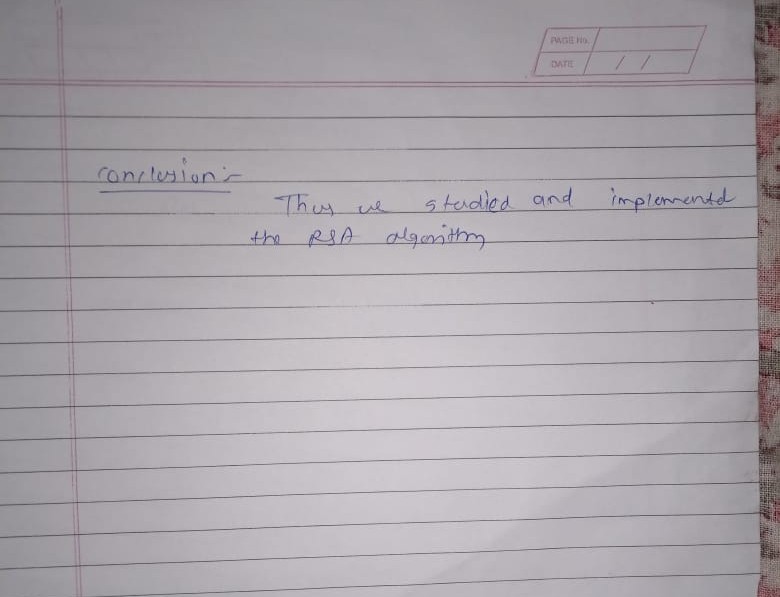 PAGE No.
DATE / /
Conclusion :-
Thus we studied and implementd
the RSA algorithm